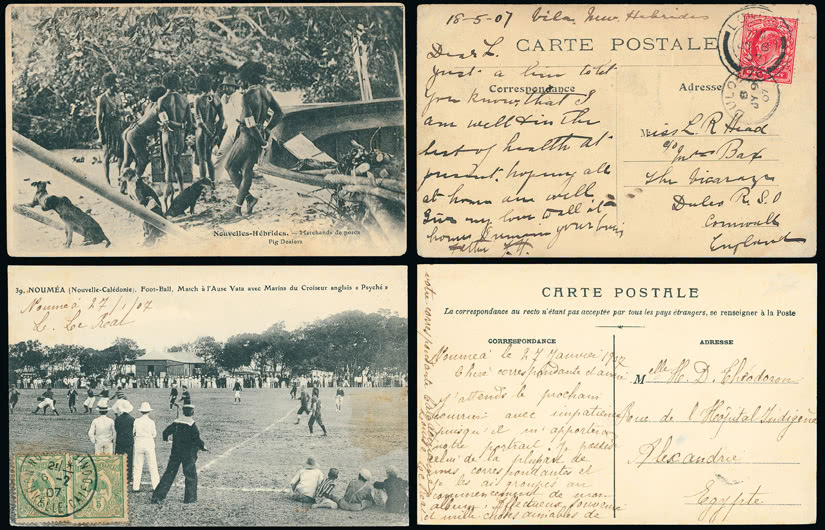 Nouvelles-Hébrides. — Marchands de porcs
Pig Dealers
18-5-07 Vila, New Hebrides
CARTE POSTALE
Correspondance
Adresse
Dear L.
Just a line to let
you know that I
am well & in the
best of health at
present, hoping all
at home are well
Give my love to all at
home
Miss L R Head
c/o Mrs Bax
The Vicarage
Duloe R.S.O
Cornwall
England
39. NOUMÉA (Nouvelle-Calédonie). Foot-Ball, Match à l'Anse Vata avec Marins du Croiseur anglais « Psyché »
Nouméa 27/1/07
CARTE POSTALE
La correspondance au recto n'étant pas acceptée par tous les pays étrangers, se renseigner à la Poste
CORRESPONDANCE
ADRESSE
Nouméa le 27 Janvier 1907
J'attends le prochain
courrier avec impatience
puisqu'il m'apportera
votre portrait. Je possède
celui de la plupart de
mes correspondantes et
je les ai groupés au
commencement de mon
album. Affectueux souvenir
et mille choses aimables de
votre correspondante
M elle H. D. Théodoron
rue de l'Hôpital Indigène
Alexandrie
Egypte